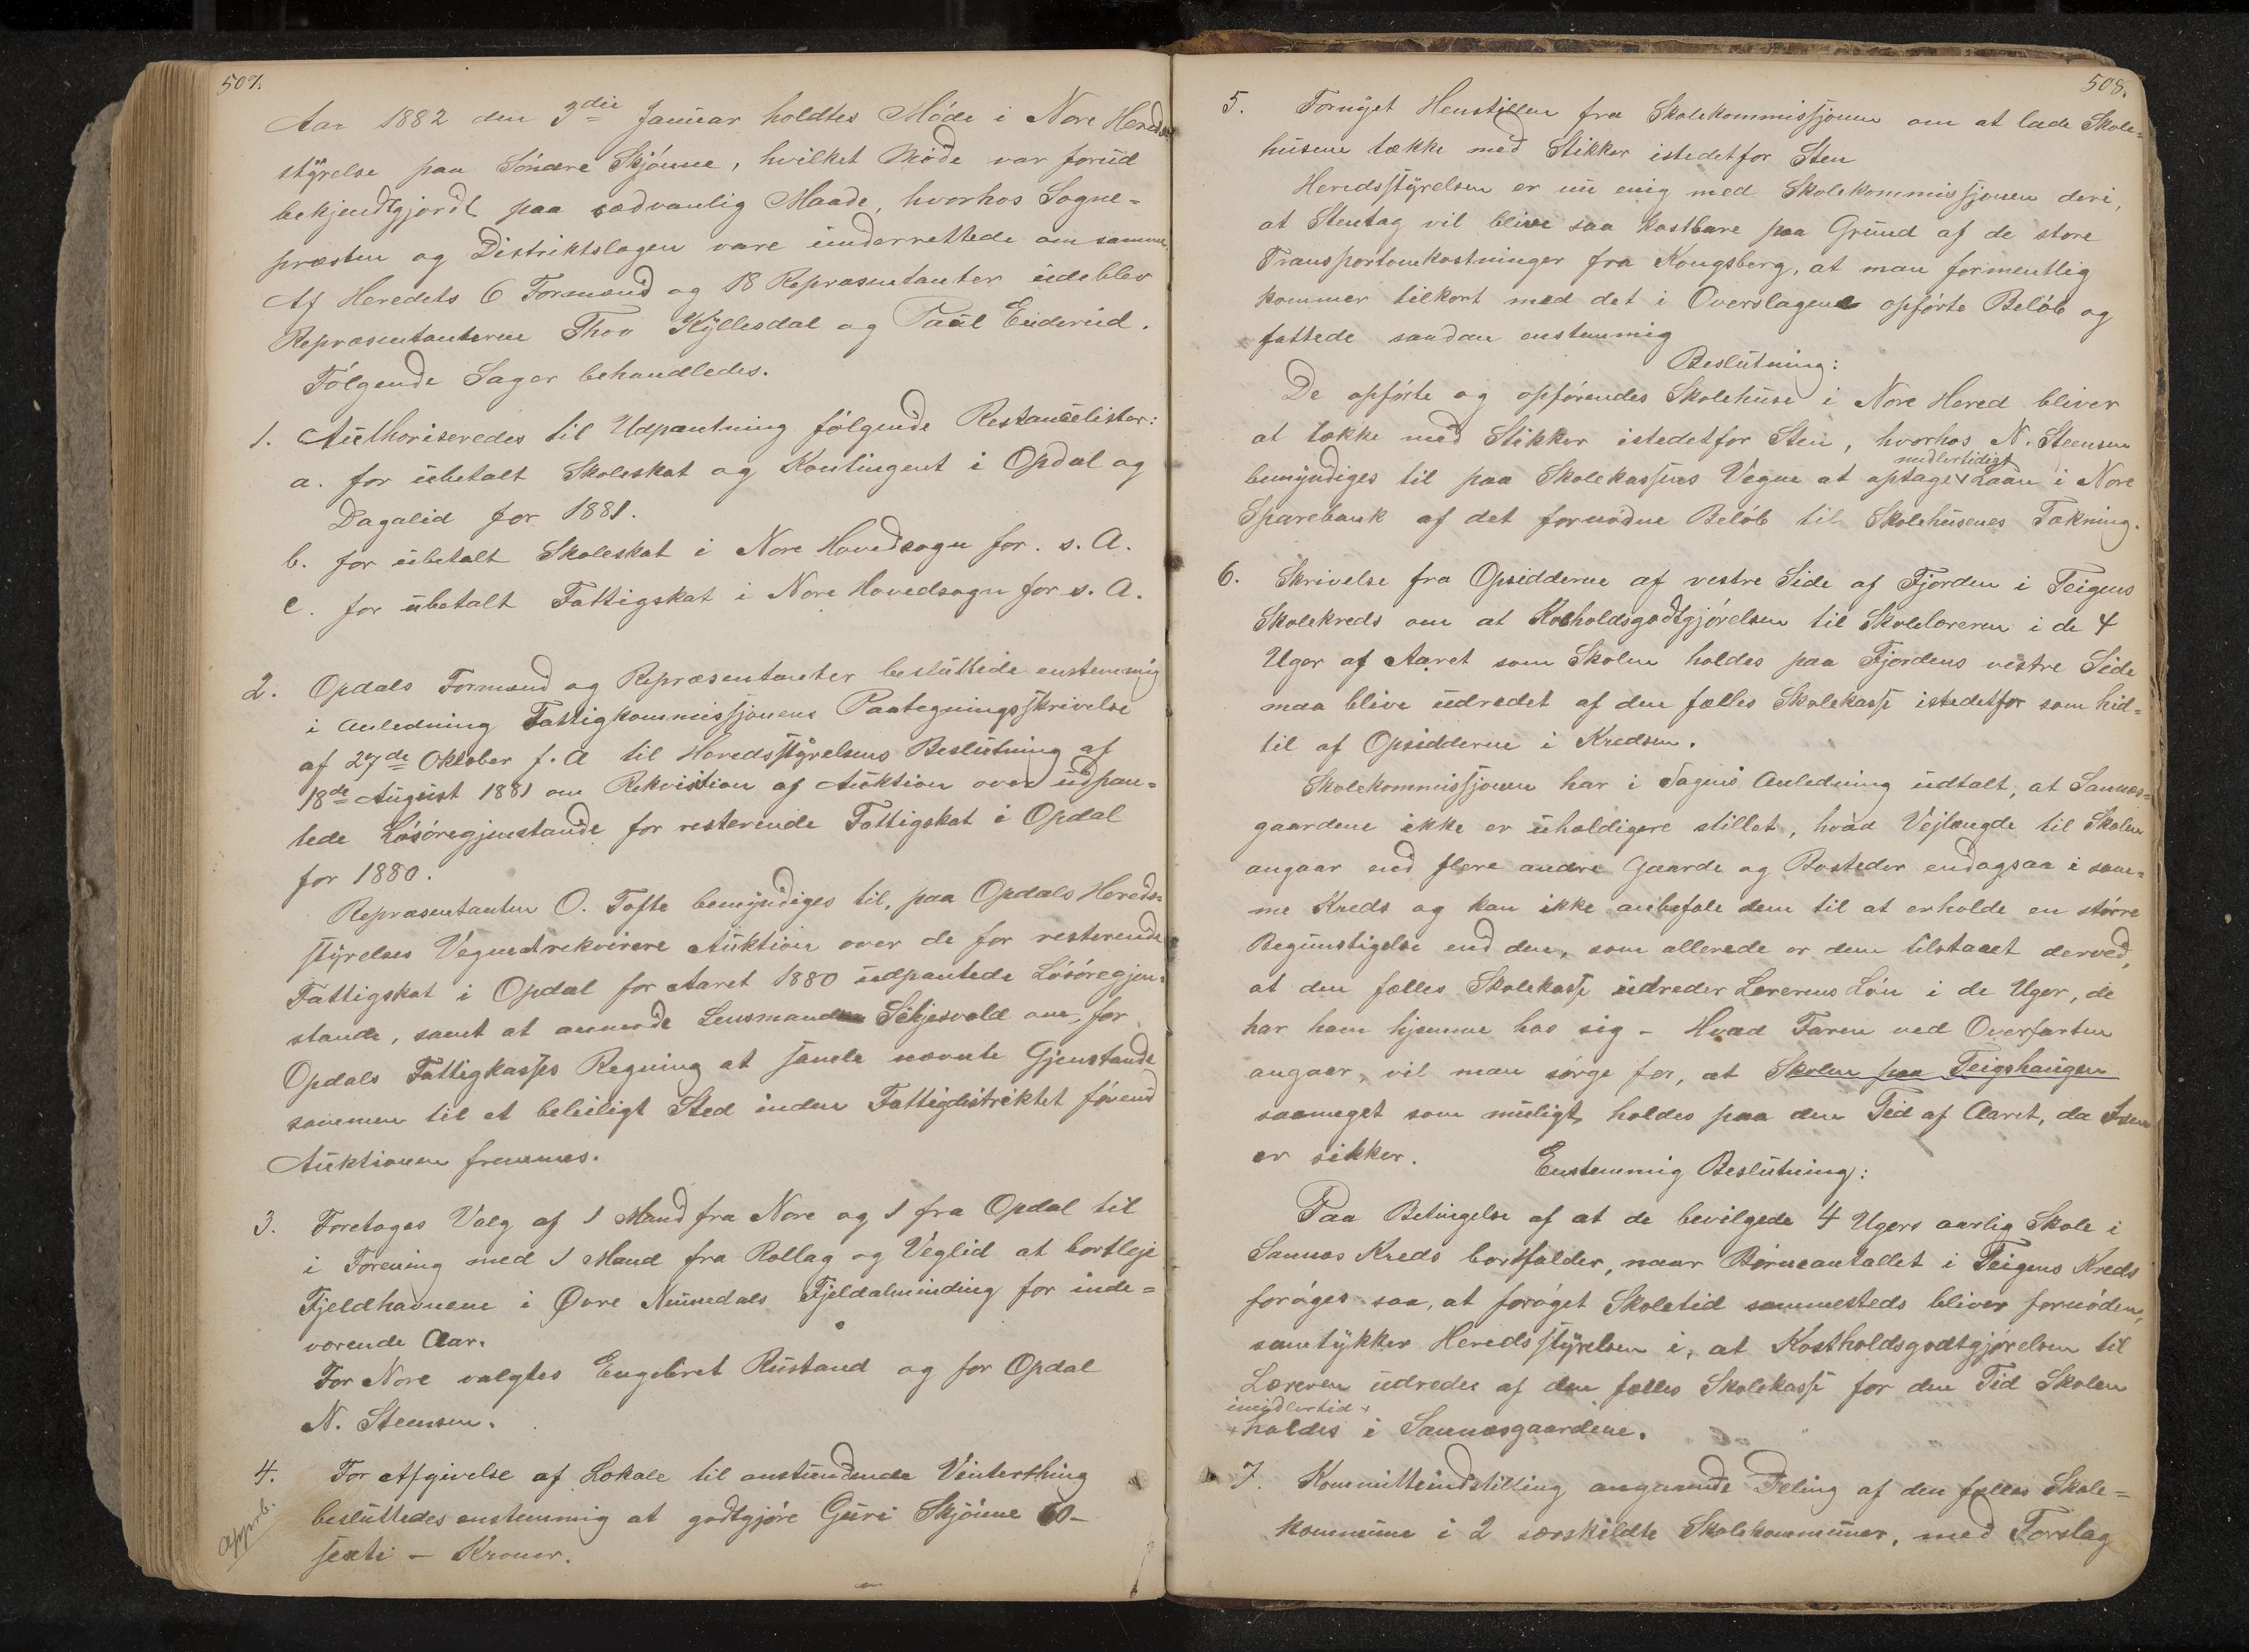 507.
Aar 1882 den 3die Januar holdtes Møde i Nore Hereds-
styrelse paa Søndre Skjønne, hvilket Møde var forud
bekjendtgjordt paa sædvanlig Maade, hvorhos Sogne-
præsten og Distriktslægen vare underrettede om samme.
Af Heredets 6 Formænd og 18 Repræsentanter udeblev
Repræsentanterne Thov Kyllesdal og Paul Enderud.
Følgende Sager behandledes.
1. Authoriseredes til Udpantning følgende Restancelister:
a. for ubetalt Skoleskat og Kontingent i Opdal og
Dagalid for 1881.
b. for ubetalt Skoleskat i Nore Hovedsogn for s. A.
c. for ubetalt Fattigskat i Nore Hovedsogn for s. A.
2. Opdals Formænd og Repræsentanter besluttede enstemmig
i Anledning Fattigkommissjonens Paategningsskrivelse
af 27de Oktober f. A til Heredsstyrelsens Beslutning af
18de August 1881 om Rekvisition af Auktion over udpan-
tede Løsøregjenstande for resterende Fattigskat i Opdal
for 1880.
Repræsentanten O. Tofte bemyndiges til, paa Opdals Hereds-
styrelses Vegne at rekvirere Auktion over de for resterende
Fattigskat i Opdal for Aaret 1880 udpantede Løsøregjen-
stande, samt at anmode Lensmand Schjesvold om, for
Opdals Fattigkasses Regning at samle nævnte Gjenstande
sammen til et beleiligt Sted inden Fattigdistriktet førend
Auktionen fremmes.
3. Foretages Valg af 1 Mand fra Nore og 1 fra Opdal til
i Forening med 1 Mand fra Rollag og Veglid at bortleje
Fjeldhavnene i Øvre Numedals Fjeldalminding for inde-
værende Aar.
For Nore valgtes Engebret Rustand og for Opdal
N. Steensen.
4. For Afgivelse af Lokale til anstundende Vinterthing
besluttedes enstemmig at godtgjøre Guri Skjønne 60-
sexti - Kroner.
Apprb.
508.
5. Fornyet Henstillen fra Skolekommissjonen om at lade Skole-
husene tække med Stikker istedetfor Sten
Heredsstyrelsen er nu enig med Skolekommissjonen deri,
at Stentag vil blive saa kostbare paa Grund af de store
Transportomkostninger fra Kongsberg, at man formentlig
kommer tilkort med det i Overslagene opførte Beløb og
fattede saadan enstemmig
Beslutning:
De opførte og opførendes Skolehuse i Nore Hered bliver
at tække med Stikker istedetfor Sten, hvorhos N. Steensen
midlertidigt
bemyndiges til paa Skolekassens Vegne at optage Laan i Nore
Sparebank af det fornødne Beløb til Skolehusenes Tækning.
6. Skrivelse fra Opsidderne af vestre Side af Fjorden i Teigens
Skolekreds om at Kostholdsgodtgjørelsen til Skolelæreren i de 4
Uger af Aaret som Skolen holdes paa Fjordens vestre Side
maa blive udredet af den fælles Skolekasse istedetfor som hid-
til af Opsidderne i Kredsen.
Skolekommissjonen har i Sagens Anledning udtalt, at Sannæs-
gaardene ikke er uheldigere stillet, hvad Vejlængde til Skolen
angaar end flere andre Gaarde og Bosteder endogsaa i sam-
me Kreds og kan ikke anbefale dem til at erholde en større
Begunstigelse end den, som allerede er dem tilstaaet derved,
at den fælles Skolekasse udreder Lærerens Løn i de Uger, de
har ham hjemme hos sig - Hvad Faren ved Overfarten
angaar, vil man sørge for, at Skolen paa Teigshaugen
saameget som muligt, holdes paa den Tid af Aaret, da Isen
er sikker.
Enstemmig Beslutning:
Paa Betingelse af at de bevilgede 4 Ugers aarlig Skole i
Sannæs Kreds bortfalder, naar Børneantallet i Teigens Kreds
forøges saa, at forøget Skoletid sammesteds bliver fornøden,
samtykker Heredsstyrelsen i, at Kostholdsgodtgjørelsen til
Læreren udredes af den fælles Skolekasse for den Tid Skolen
imidlertid +
+ holdes i Sannæsgaardene.
7. Kommitteindstilling angaaende Deling af den fælles Skole-
kommune i 2 særskildte Skolekommuner, med Forslag